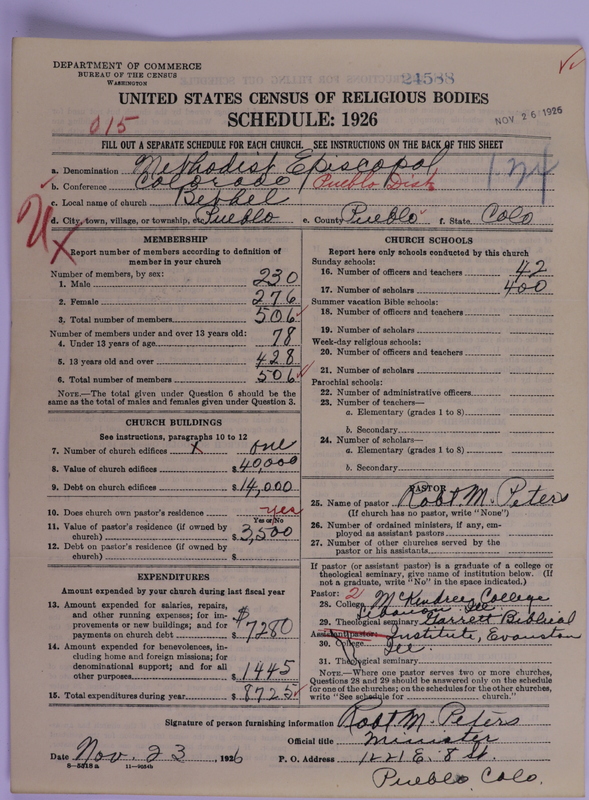 24588
DEPARTMENT OF COMMERCE
BUREAU OF THE CENSUS
WASHINGTON
UNITED STATES CENSUS OF RELIGIOUS BODIES
NOV 26 1926
015
SCHEDULE: 1926
FILL OUT A SEPARATE SCHEDULE FOR EACH CHURCH. SEE INSTRUCTIONS ON THE BACK OF THIS SHEET
a. Denomination Methodist Episcopal
b. Conference Colorado / Pueblo Dist
c. Local name of church Bethel
d. City, town, village, or township, etc. Pueblo e. County Pueblo f. State Colo
MEMBERSHIP
Report number of members according to definition of
member in your church
Number of members, by sex:
1. Male 230
2. Female 276
3. Total number of members 506
Number of members under and over 13 years old:
4. Under 13 years of age 78
5. 13 years old and over 428
6. Total number of members 506
NOTE.—The total given under Question 6 should be the
same as the total of males and females given under Question 3.
CHURCH BUILDINGS
See instructions, paragraphs 10 to 12
7. Number of church edifices x one
8. Value of church edifices $ 40,000
9. Debt on church edifices $ 14,000
10. Does church own pastor's residence yes
Yes or No
11. Value of pastor's residence (if owned by
church) $ 3,500
12. Debt on pastor's residence (if owned by
church) $
EXPENDITURES
Amount expended by your church during last fiscal year
13. Amount expended for salaries, repairs,
and other running expenses; for im-
provements or new buildings; and for
payments on church debt $ 7280
14. Amount expended for benevolences, in-
cluding home and foreign missions; for
denominational support; and for all
other purposes $ 1445
15. Total expenditures during year $ 8725
CHURCH SCHOOLS
Report here only schools conducted by this church
Sunday schools:
16. Number of officers and teachers 42
17. Number of scholars 400
Summer vacation Bible schools:
18. Number of officers and teachers
19. Number of scholars
Week-day religious schools:
20. Number of officers and teachers
21. Number of scholars
Parochial schools:
22. Number of administrative officers
23. Number of teachers—
a. Elementary (grades 1 to 8)
b. Secondary
24. Number of scholars—
a. Elementary (grades 1 to 8)
b. Secondary
PASTOR
25. Name of pastor Robt. M. Peters
(If church has no pastor, write "None")
26. Number of ordained ministers, if any, em-
ployed as assistant pastors
27. Number of other churches served by the
pastor or his assistants
If pastor (or assistant pastor) is a graduate of a college or
theological seminary, give name of institution below. (If
not a graduate, write "No" in the space indicated.)
Pastor: 2
28. College McKendree College
Lebanon, Ill
29. Theological seminary Garrett Biblical
Assistant pastor: Institute, Evanston
30. College Ill.
31. Theological seminary
NOTE.—Where one pastor serves two or more churches,
Questions 28 and 29 should be answered only on the schedule
for one of the churches; on the schedules for the other churches,
write "See schedule for church."
Signature of person furnishing information Robt. M. Peters
Official title Minister
Date Nov. 23, 1926 P. O. Address 1221 E. 8 St.
8-5218a 11-9554b
Pueblo, Colo.